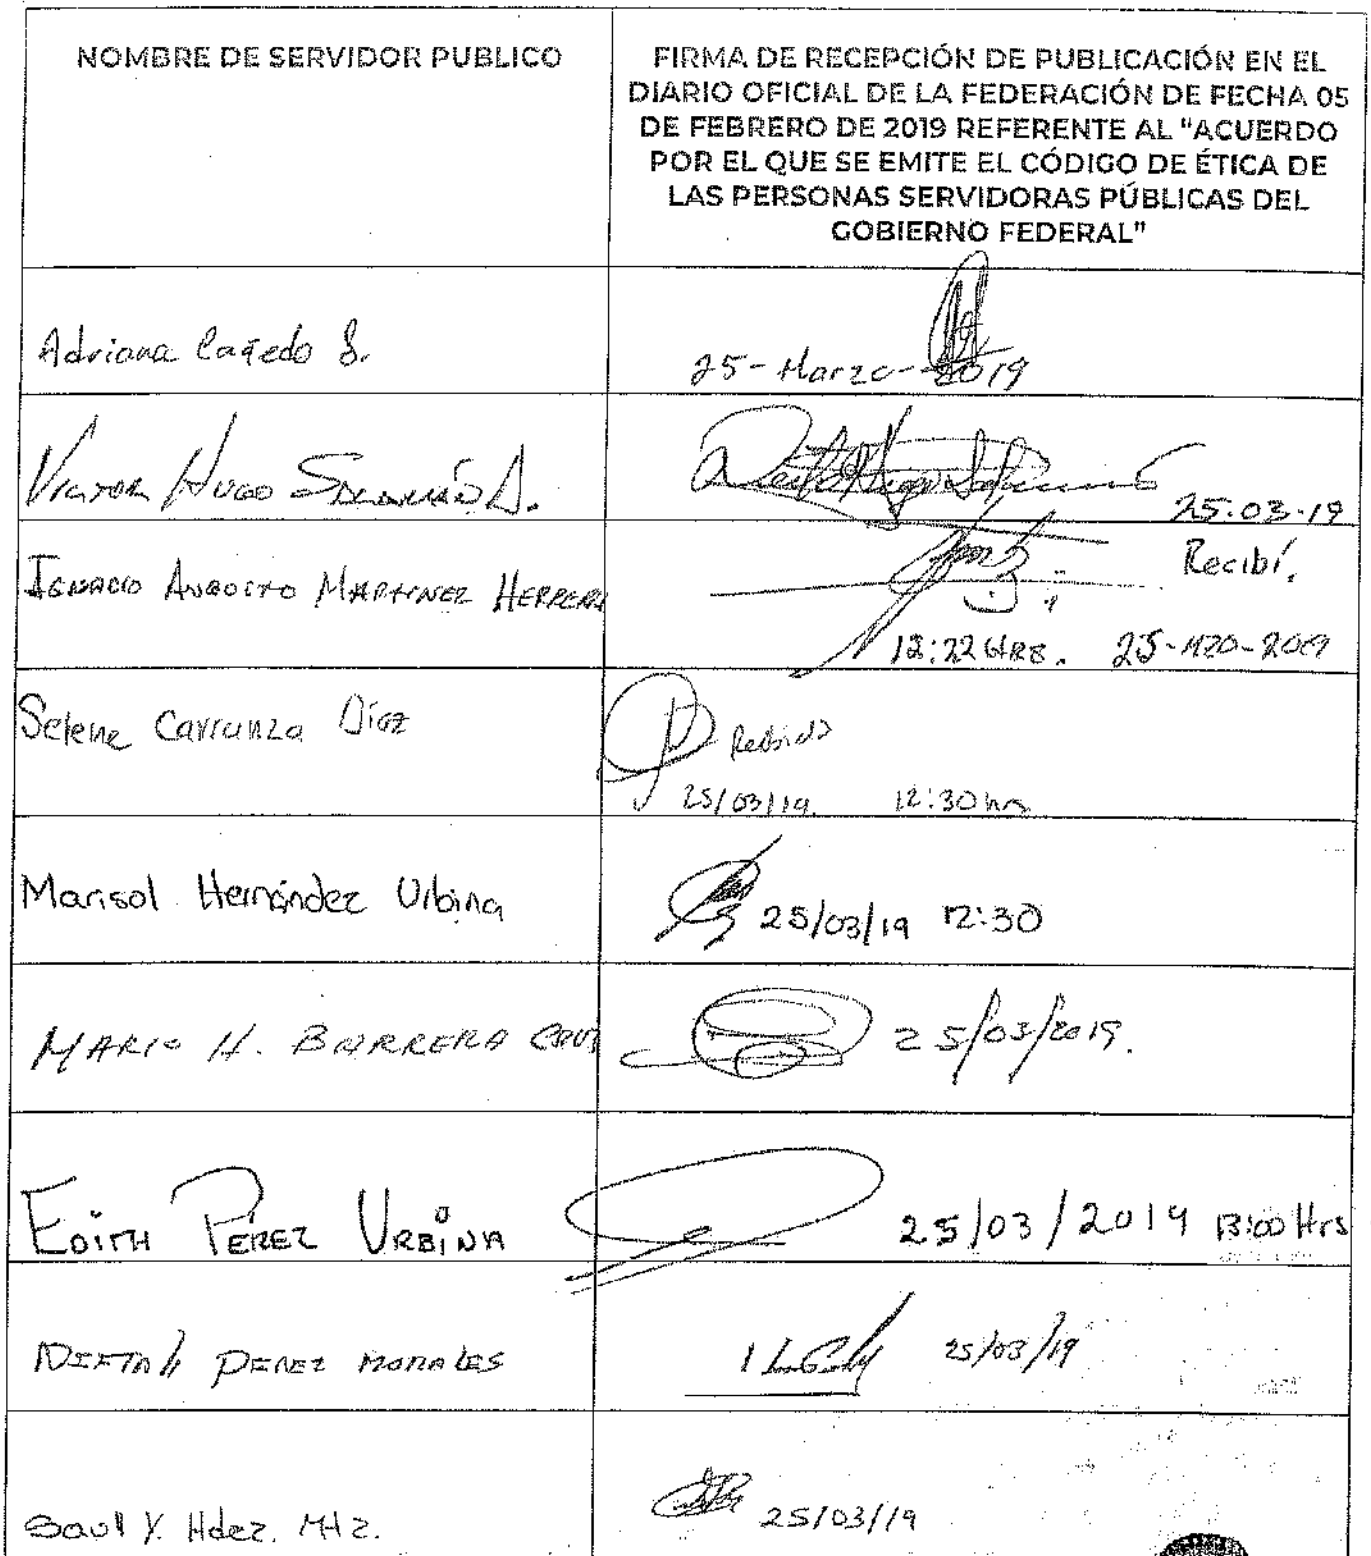 NOMBRE DE SERVIDOR PUBLICO
FIRMA DE RECEPCIÓN DE PUBLICACIÓN EN EL
DIARIO OFICIAL DE LA FEDERACIÓN DE FECHA 05
DE FEBRERO DE 2019 REFERENTE AL "ACUERDO
POR EL QUE SE EMITE EL CÓDIGO DE ÉTICA DE
LAS PERSONAS SERVIDORAS PÚBLICAS DEL
GOBIERNO FEDERAL"
Adriana S.
25-Marzo-2019
VICTOR HUGO
25-03-19
IGNACIO AUGUSTO MARTINEZ HERRERA
Recibí.
12:22 HRS. 25-MZO-2019
Selene Carranza Díaz
Recibido
25/03/19. 12:30 hrs
Marisol Hernández Urbina
25/03/19 12:30
MARIO H. BARRERA CRUZ
25/03/2019.
EDITH PÉREZ URBINA
25/03/2019 13:00 Hrs
PEREZ MORALES
25/03/19
Saul Y. Hdez. Mtz.
25/03/19